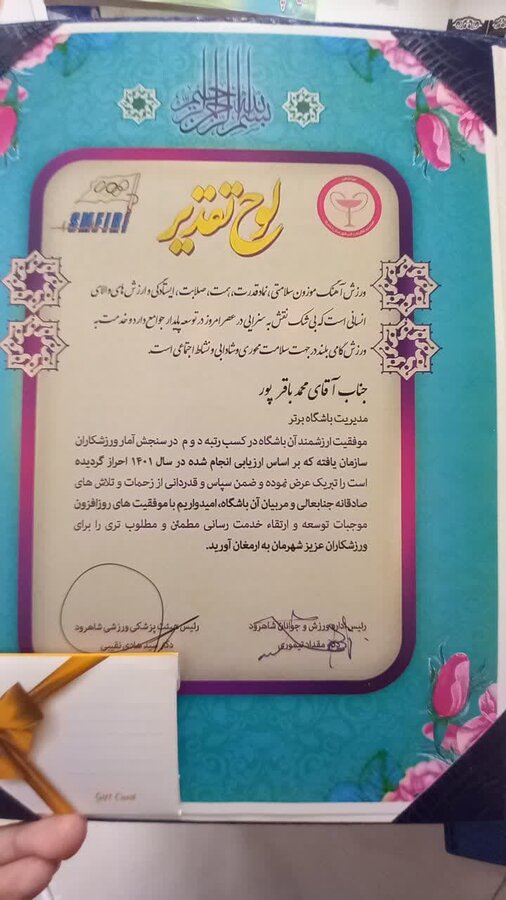 بسم الله الرحمن الرحیم
SMFIRI
لوح تقدیر
ورزش آهنگ موزون سلامتی، نماد قدرت، همت، صلابت، ایستادگی و ارزش های والای
انسانی است که بی شک نقش به سزایی در عصر امروز در توسعه پایدار جوامع دارد و خدمت به
ورزش گامی بلند در جهت سلامت محوری و شادابی و نشاط اجتماعی است.
جناب آقای محمد باقر پور
مدیریت باشگاه برتر
موفقیت ارزشمند آن باشگاه در کسب رتبه د و م در سنجش آمار ورزشکاران
سازمان یافته که بر اساس ارزیابی انجام شده در سال ۱۴۰۱ احراز گردیده
است را تبریک عرض نموده و ضمن سپاس و قدردانی از زحمات و تلاش های
صادقانه جنابعالی و مربیان آن باشگاه، امیدواریم با موفقیت های روزافزون
موجبات توسعه و ارتقاء خدمت رسانی مطمئن و مطلوب تری را برای
ورزشکاران عزیز شهرمان به ارمغان آورید.
رئیس اداره ورزش و جوانان شاهرود
دکتر مقداد تیموری
رئیس هیئت پزشکی ورزشی شاهرود
دکتر سید هادی نقیبی
Gift Card